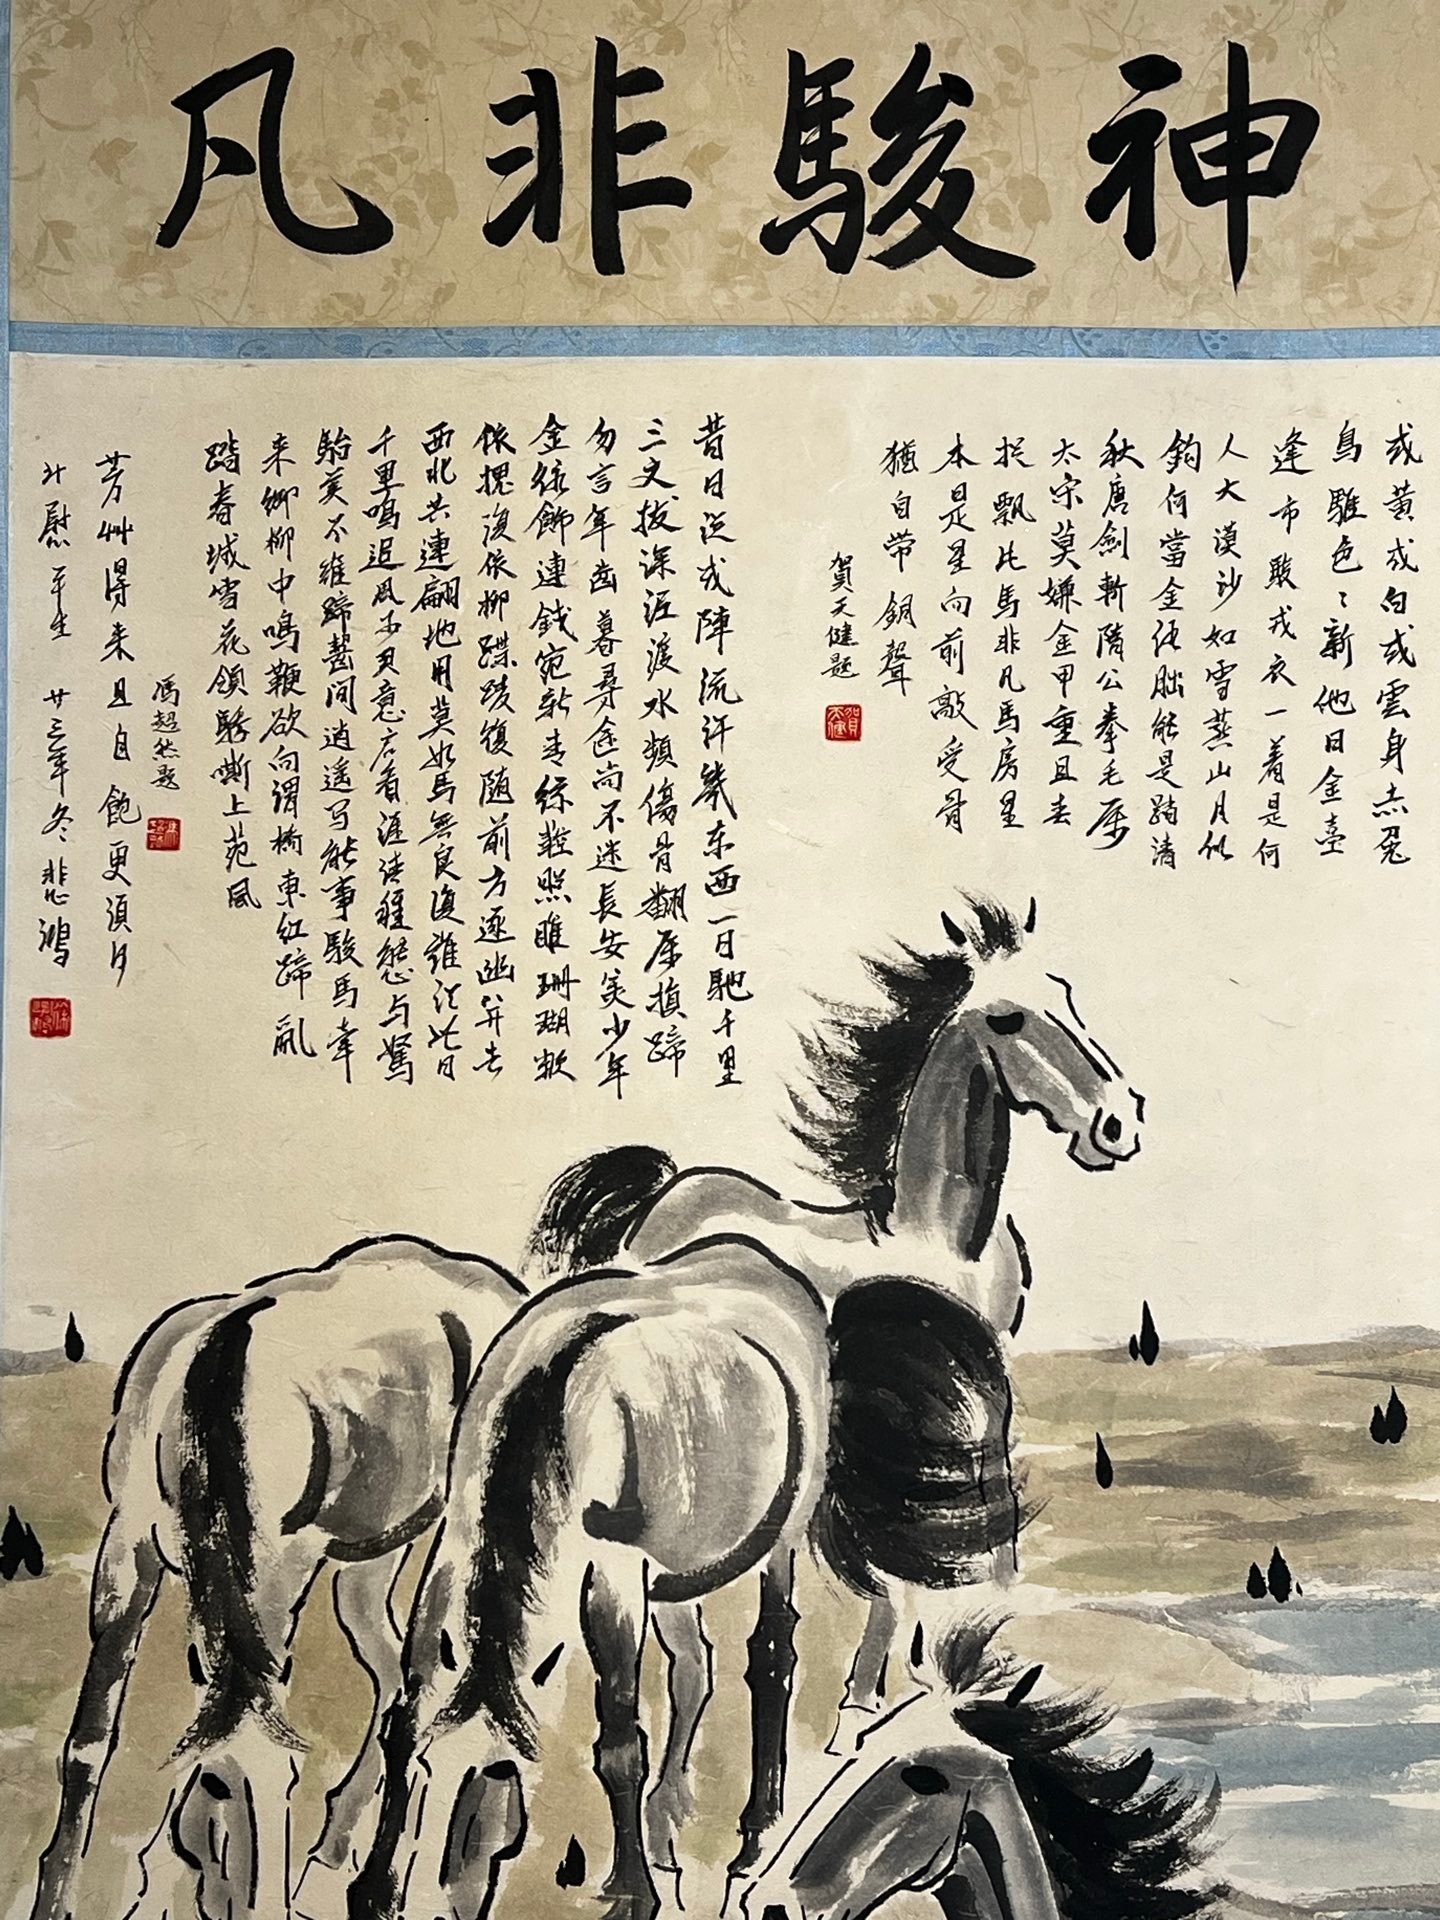 神駿非凡
或黃或白或雲身赤兔
鳥騅色々新他日金臺
逢市駿戎衣一着是何
人大漠沙如雪燕山月似
鈎何當金絡腦能是踏清
秋唐劍斬隋公拳毛屬
太宗莫嫌金甲重且去
捉飄此馬非凡馬房星
本是星向前敲受骨
猶自帶銅聲
賀天健題
昔日從戎陣流汗幾东西一日馳千里
三丈拔深泥渡水頻傷骨翻屬損蹄
勿言年齒暮尋途尚不迷長安美少年
金絡飾連錢宛轉青絲鞚照雎珊瑚
依槐復依柳蹀復随前方逐幽并去
西北共連翩地用莫如馬無良復誰此日
千里鳴追風有看涯能与駑
駘美不難蹄齧间逍遥写能事駿馬牽
来御柳中鳴鞭欲向渭橋東红蹄亂
踏春城雪花頷驕嘶上苑風
馮超然題
芳艸得来且自飽更須
慰平生 廿三年冬 悲鴻